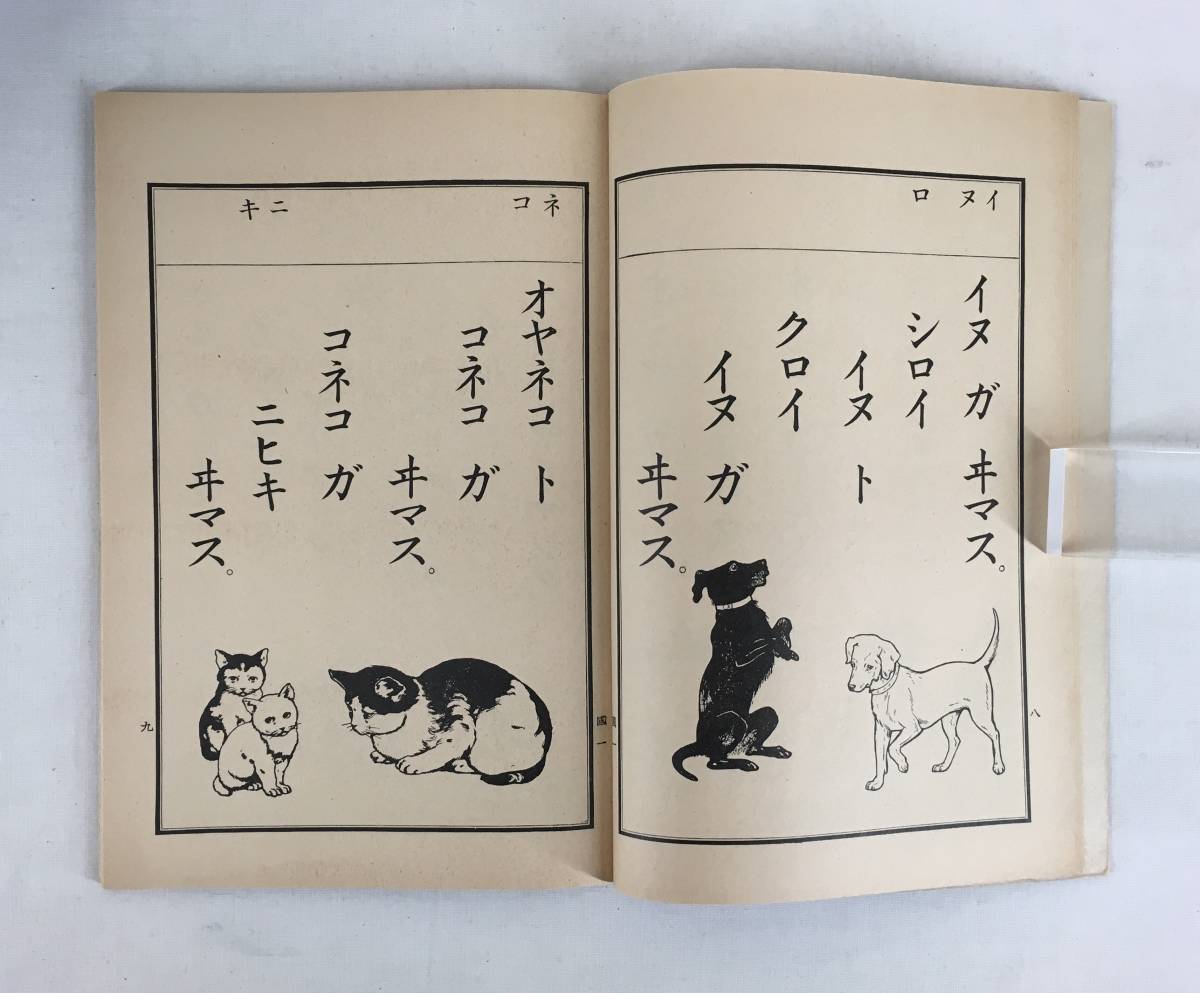 イヌ ロ
イヌ ガ ヰマス。
シロイ
イヌ ト
クロイ
イヌ ガ
ヰマス。
八
ネコ ニキ
オヤネコ ト
コネコ ガ
ヰマス。
コネコ ガ
ニヒキ
ヰマス。
國一
九